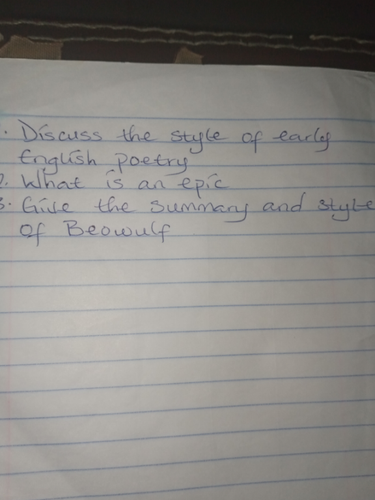 . Discuss the style of early
English poetry
2. What is an epic
3. Give the summary and style
of Beowulf